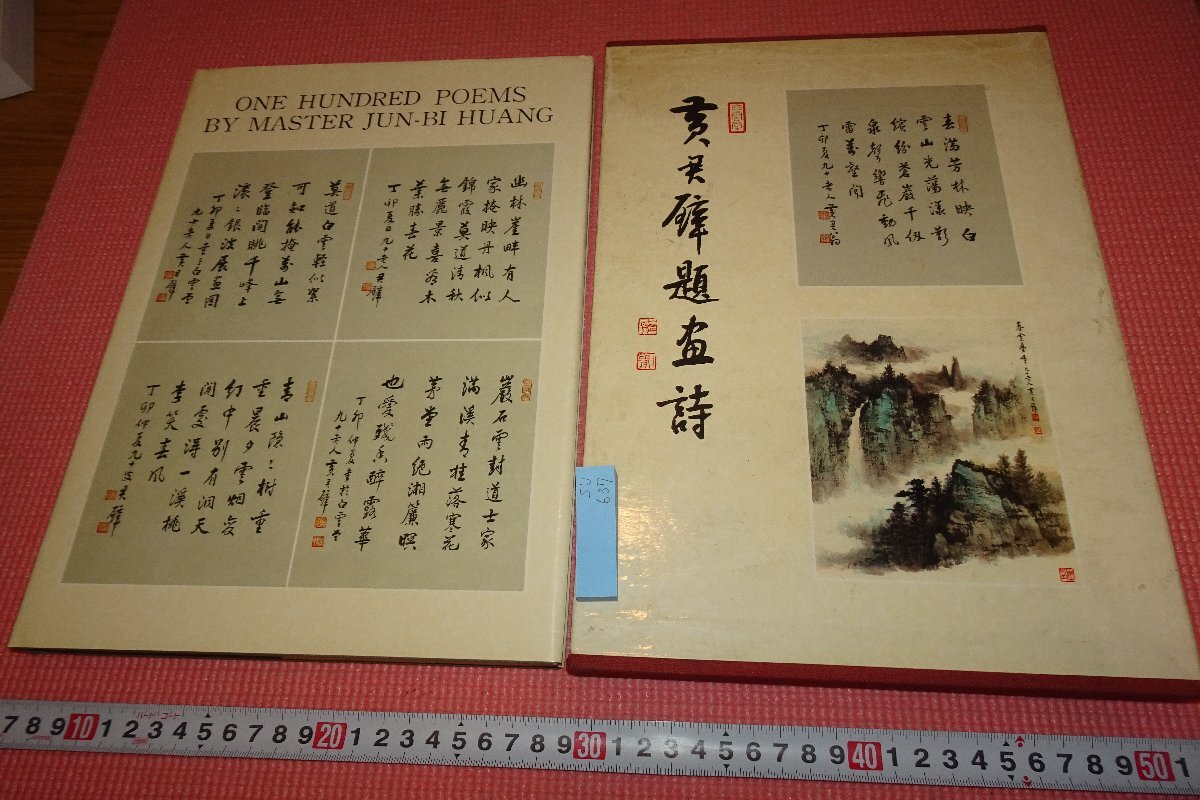 ONE HUNDRED POEMS
BY MASTER JUN-BI HUANG
莫道白雲輕似絮
可知能掩萬山無
登臨閒眺千峰上
滾〻銀波展画圖
丁卯夏日書于白雲堂
九十老人黃君璧
幽林崖畔有人
家掩映丹楓似
錦霞莫道清秋
無麗景喜看木
葉勝春花
丁卯夏日九十老人君璧
青山隱〻樹重
重晨夕雲烟變
幻中別有洞天
閒處得一溪桃
李笑春風
丁卯仲夏九十叟君璧
巖石雲封道士家
滿溪青桂落寒花
茅堂雨絕湘簾暝
也愛殘香醉露華
丁卯仲夏書於白雲堂
九十老人黃君璧
黃君璧題画詩
春滿芳林映白
雲山光蕩漾影
繽紛蒼巖千仞
泉聲響飛動風
雷萬壑聞
丁卯夏九十老人黃君翁
635
7 8 9 10 1 2 3 4 5 6 7 8 9 20 1 2 3 4 5 6 7 8 9 30 1 2 3 4 5 6 7 8 9 40 1 2 3 4 5 6 7 8 9 50 1